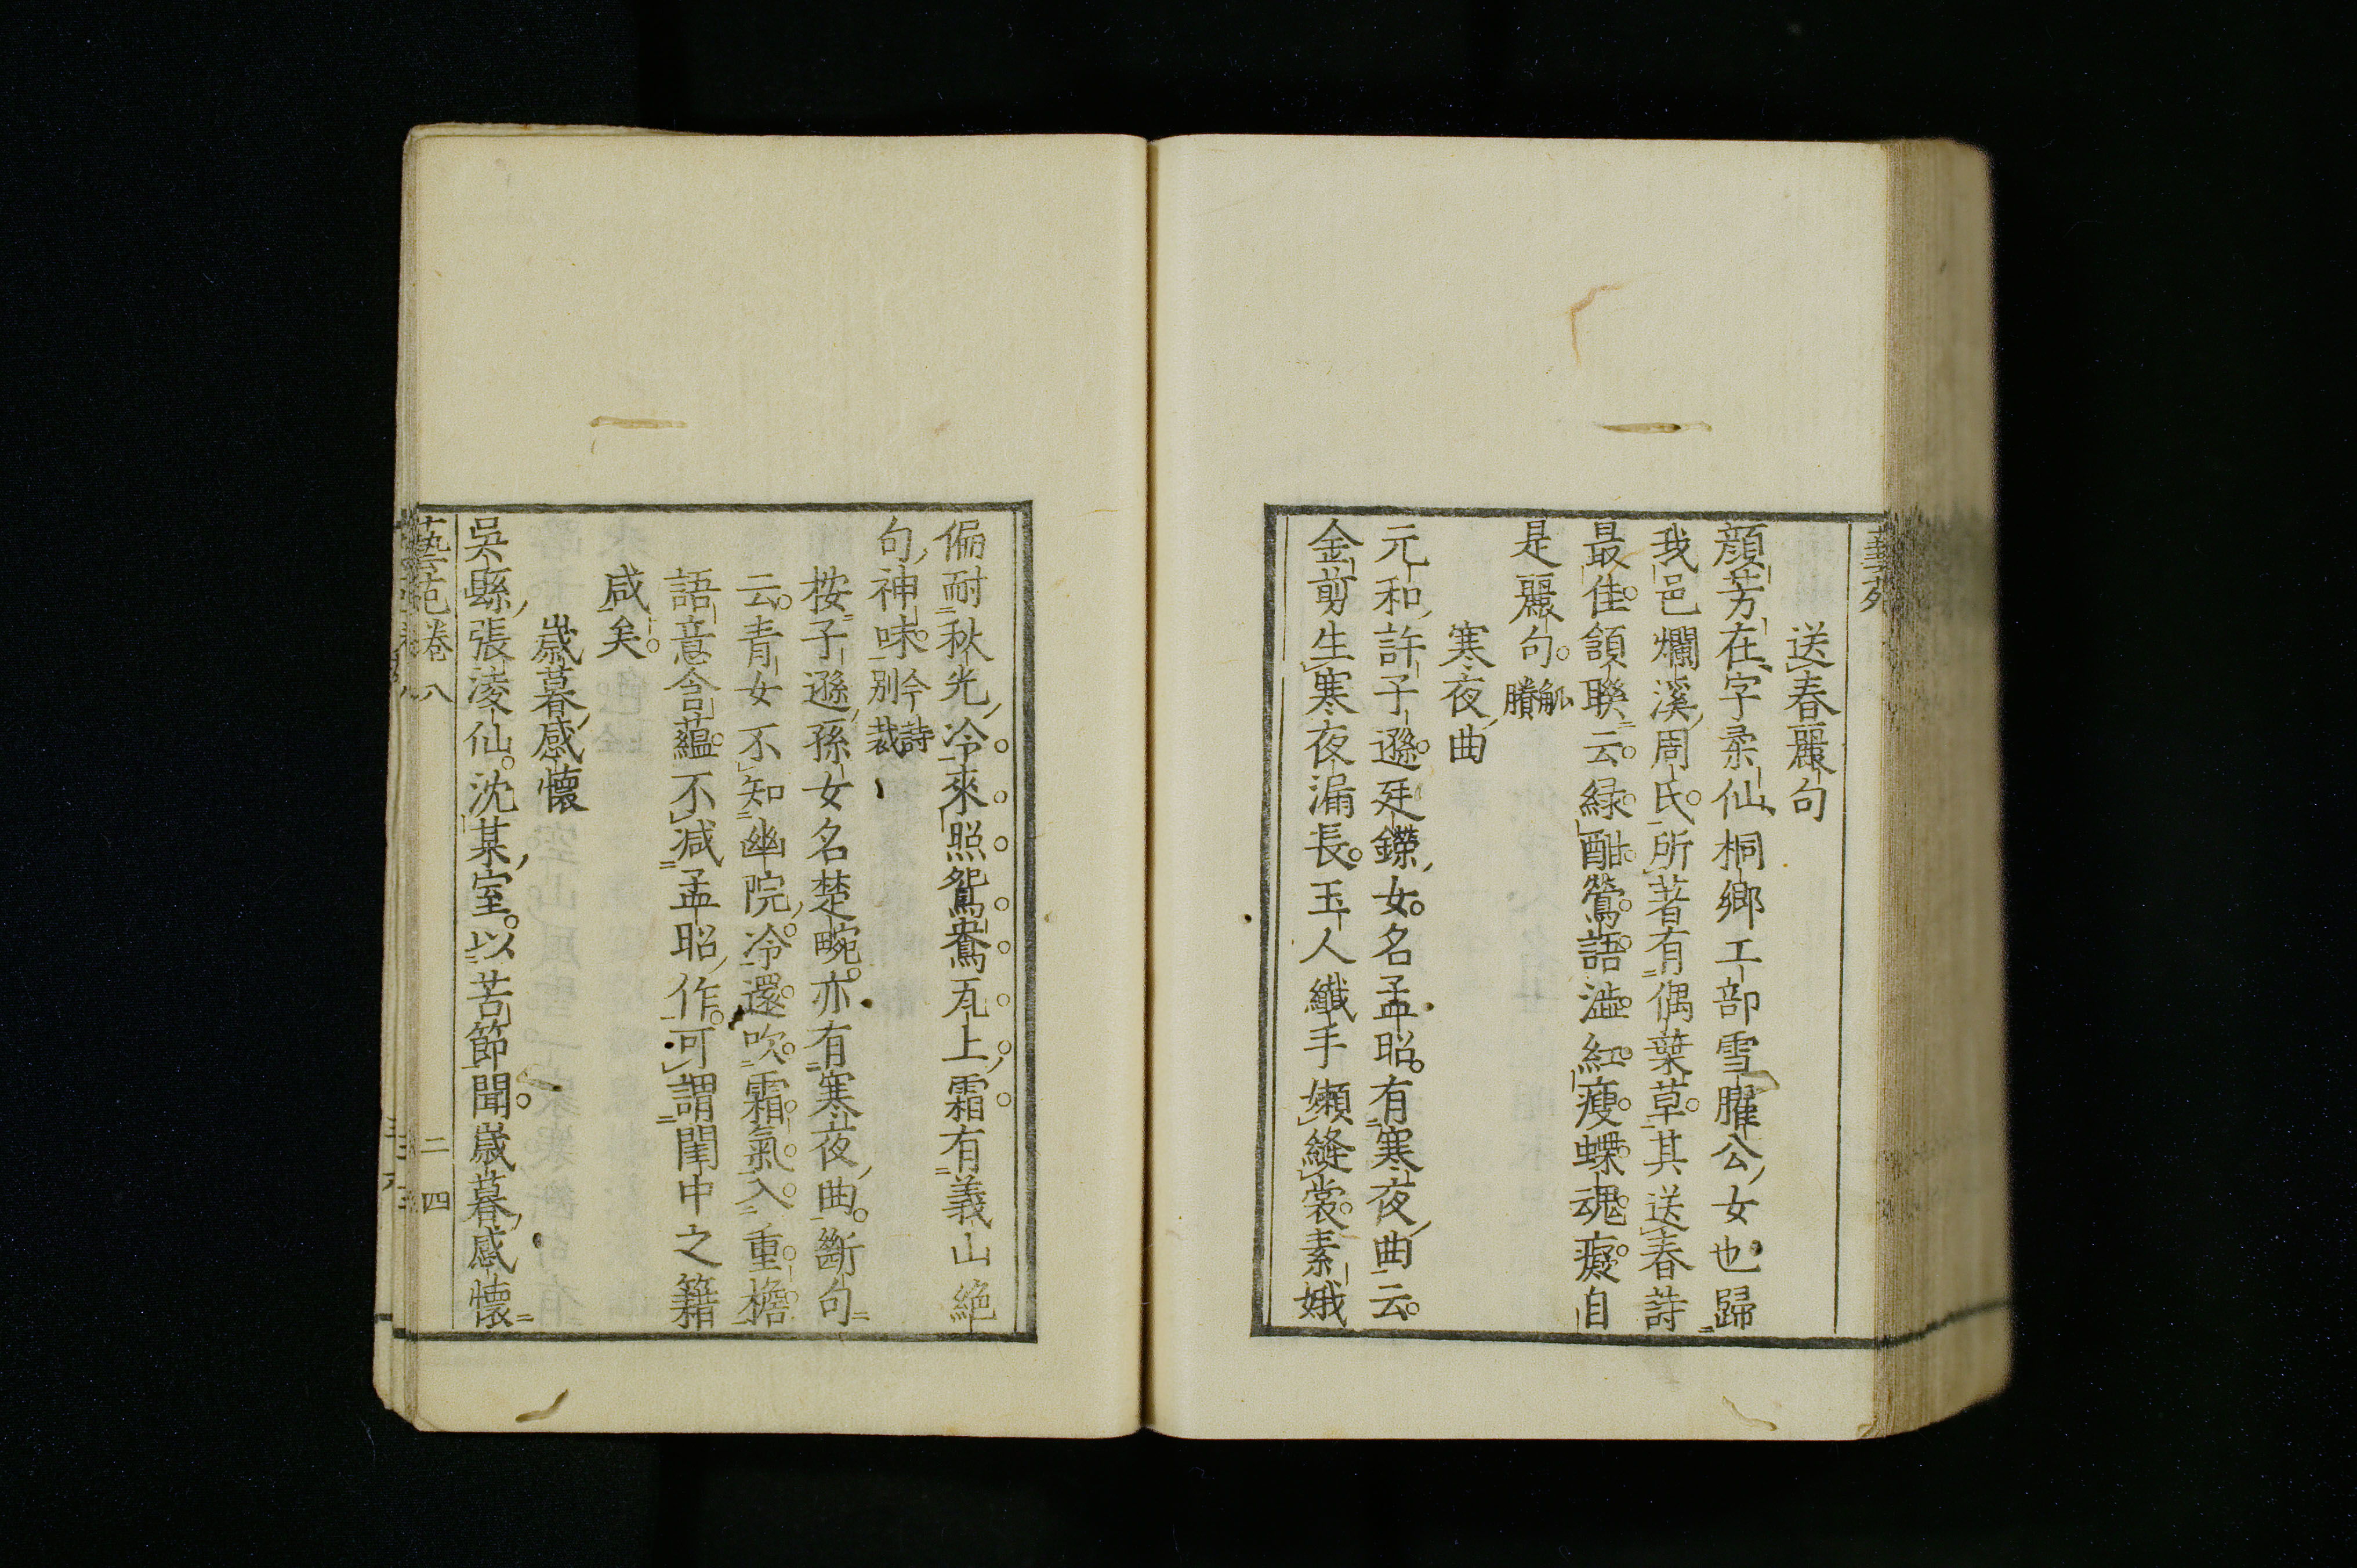 藝苑
送春麗句
顔芳在字柔仙桐鄉工部雪臞公女也歸
我邑爛溪周氏所著有偶葉草其送春詩
最佳頷聯云緑酣鶯語澁紅瘦蝶魂癡自
是麗句觚賸
寒夜曲
元和許子遜廷鑅女名孟昭有寒夜曲云
金剪生寒夜漏長玉人纖手嬾縫裳素娥
偏耐秋光冷來照鴛鴦瓦上霜有義山絶
句神味今詩別裁
按子遜孫女名楚畹亦有寒夜曲斷句
云青女不知幽院冷還吹霜氣入重檐
語意含蘊不減孟昭作可謂閨中之籍
咸矣
嵗暮感懷
吳縣張淩仙沈某室以苦節聞嵗暮感懷
藝苑卷八 二四